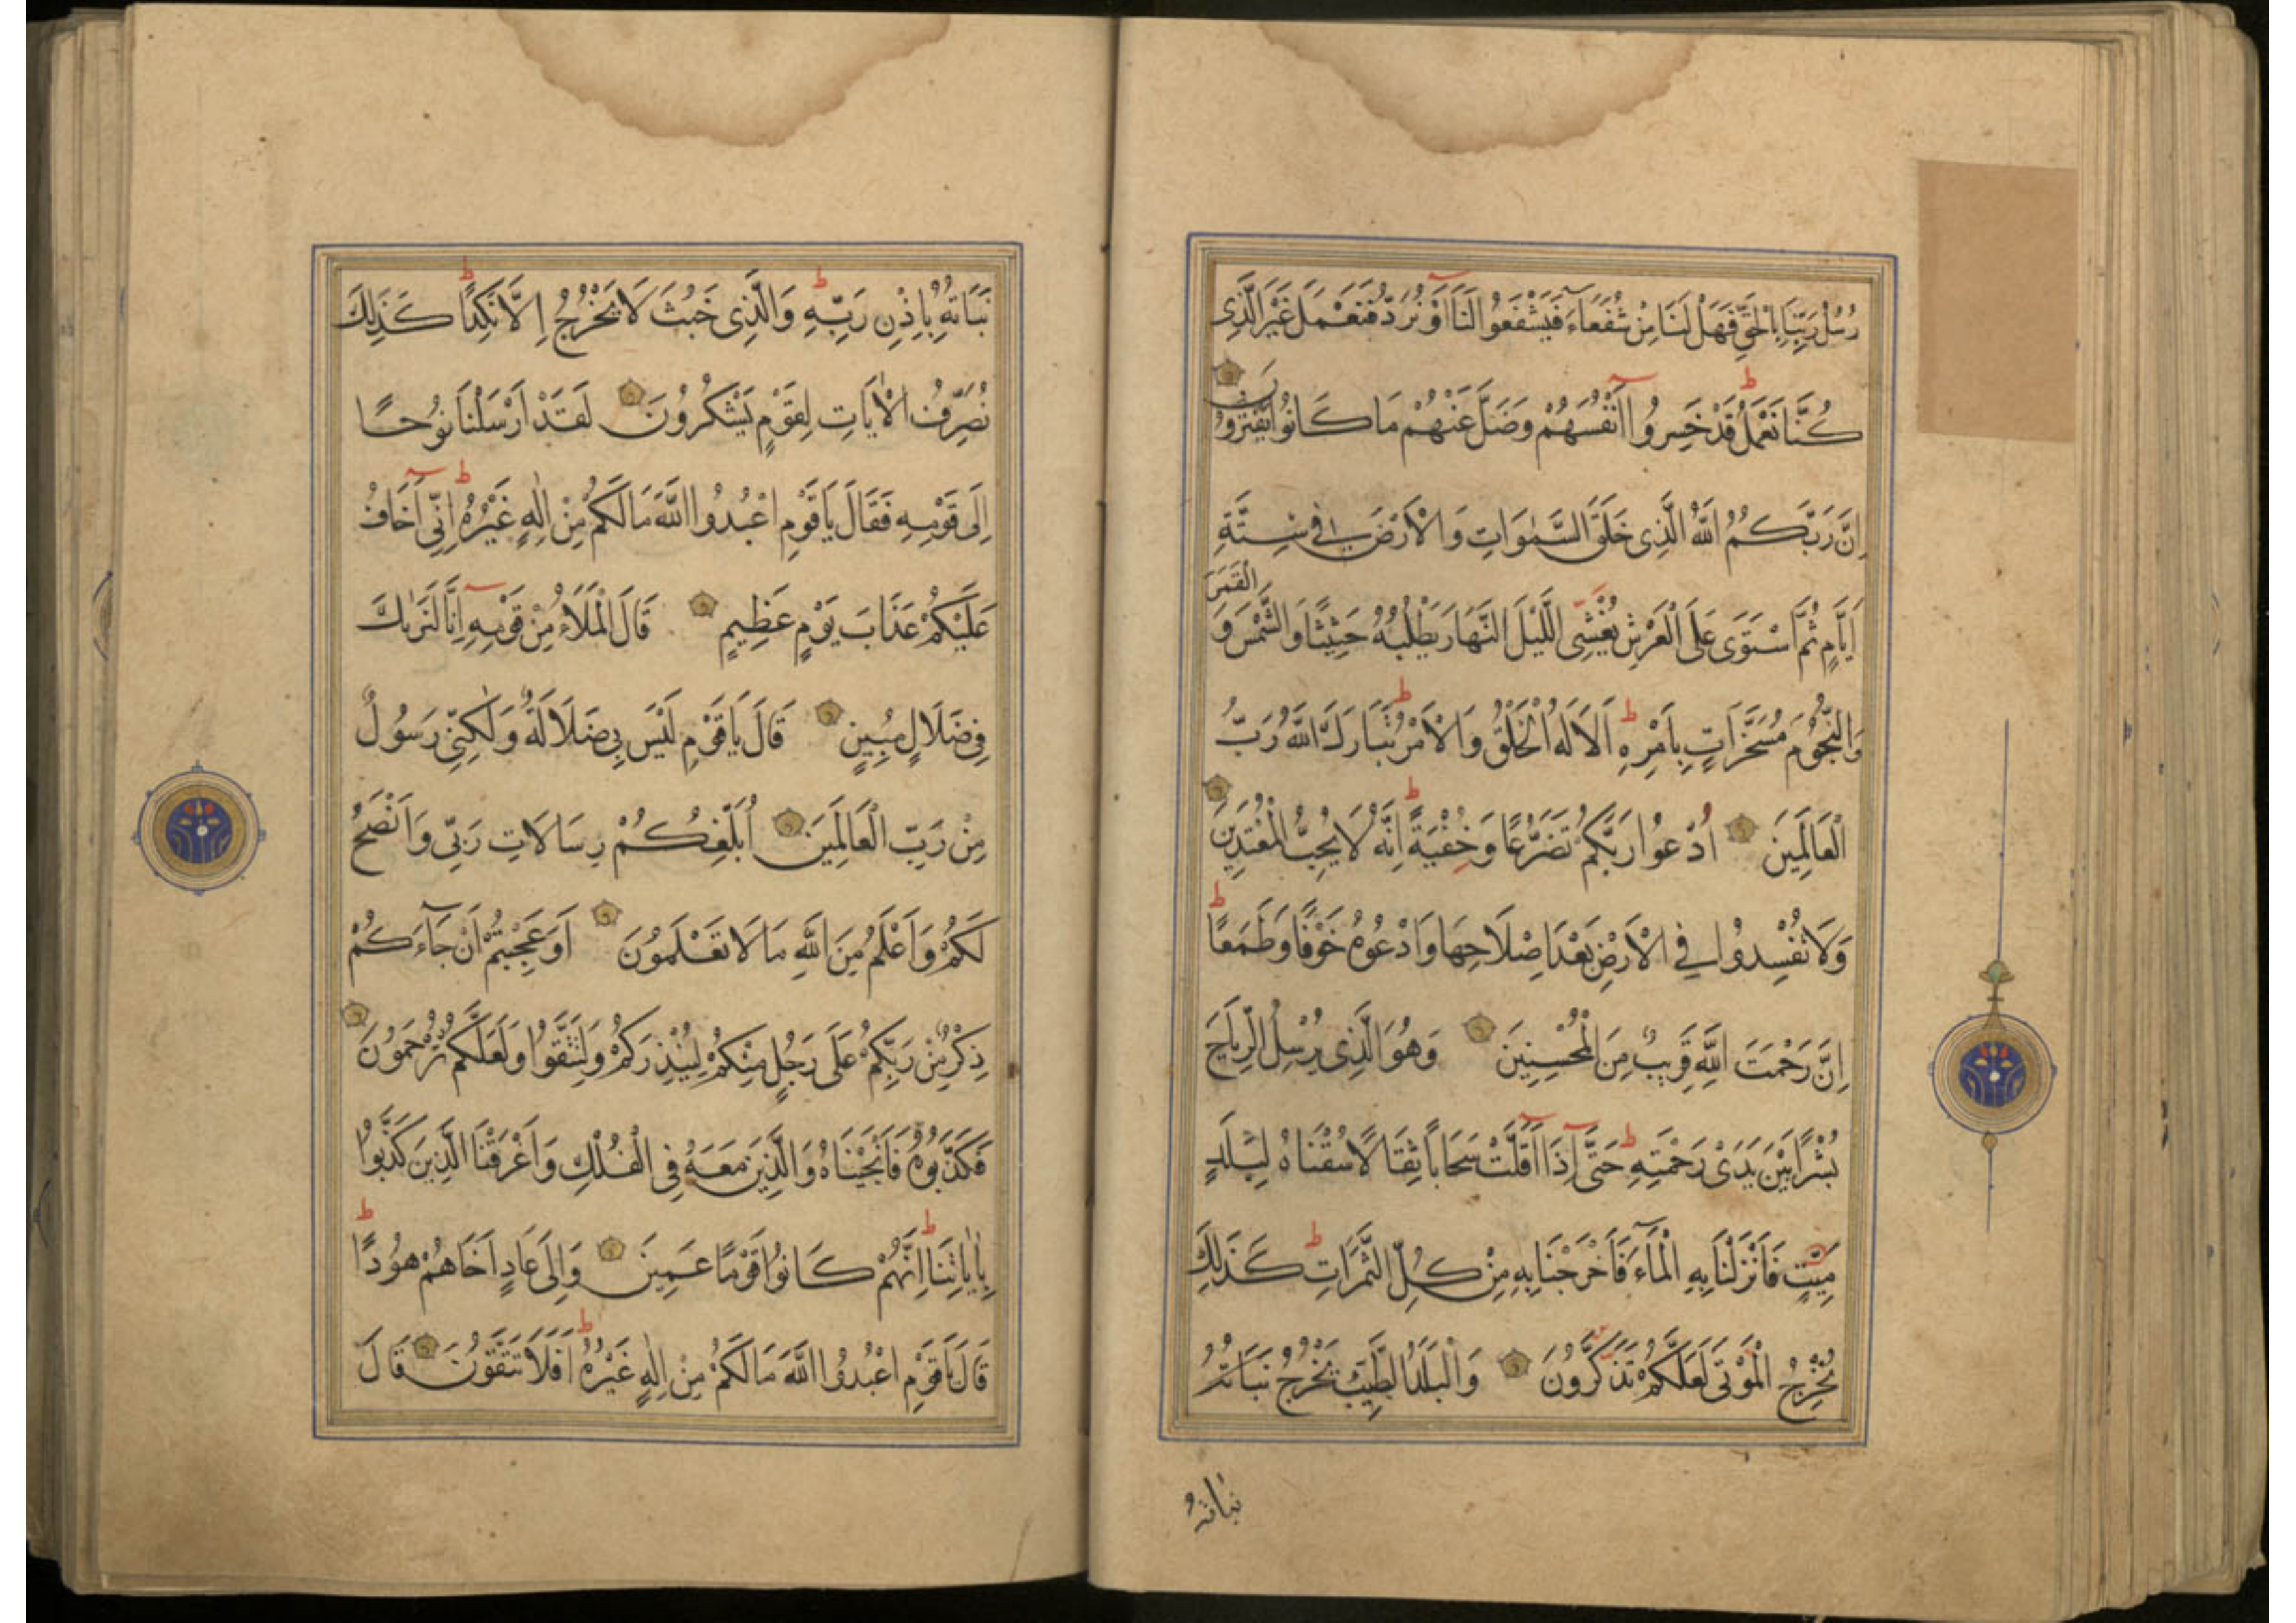 رُسُلُ رَبِّنَا بِالْحَقِّ فَهَلْ لَنَا مِنْ شُفَعَاءَ فَيَشْفَعُوا لَنَا اَوْ نُرَدُّ فَنَعْمَلَ غَيْرَ الَّذِى
كُنَّا نَعْمَلُ قَدْ خَسِرُوا اَنْفُسَهُمْ وَضَلَّ عَنْهُمْ مَا كَانُوا يَفْتَرُونَ
اِنَّ رَبَّكُمُ اللّٰهُ الَّذِى خَلَقَ السَّمٰوَاتِ وَالْاَرْضَ فِى سِتَّةِ
اَيَّامٍ ثُمَّ اسْتَوٰى عَلَى الْعَرْشِ يُغْشِى الَّيْلَ النَّهَارَ يَطْلُبُهُ حَثِيثًا وَالشَّمْسَ وَالْقَمَرَ
وَالنُّجُومَ مُسَخَّرَاتٍ بِاَمْرِهِ اَلَا لَهُ الْخَلْقُ وَالْاَمْرُ تَبَارَكَ اللّٰهُ رَبُّ
الْعَالَمِينَ اُدْعُوا رَبَّكُمْ تَضَرُّعًا وَخُفْيَةً اِنَّهُ لَا يُحِبُّ الْمُعْتَدِينَ
وَلَا تُفْسِدُوا فِى الْاَرْضِ بَعْدَ اِصْلَاحِهَا وَادْعُوهُ خَوْفًا وَطَمَعًا
اِنَّ رَحْمَتَ اللّٰهِ قَرِيبٌ مِنَ الْمُحْسِنِينَ وَهُوَ الَّذِى يُرْسِلُ الرِّيَاحَ
بُشْرًا بَيْنَ يَدَىْ رَحْمَتِهِ حَتّٰى اِذَا اَقَلَّتْ سَحَابًا ثِقَالًا سُقْنَاهُ لِبَلَدٍ
مَيِّتٍ فَاَنْزَلْنَا بِهِ الْمَاءَ فَاَخْرَجْنَا بِهِ مِنْ كُلِّ الثَّمَرَاتِ كَذٰلِكَ
نُخْرِجُ الْمَوْتٰى لَعَلَّكُمْ تَذَكَّرُونَ وَالْبَلَدُ الطَّيِّبُ يَخْرُجُ نَبَاتُهُ
نباته
نَبَاتُهُ بِاِذْنِ رَبِّهِ وَالَّذِى خَبُثَ لَا يَخْرُجُ اِلَّا نَكِدًا كَذٰلِكَ
نُصَرِّفُ الْاٰيَاتِ لِقَوْمٍ يَشْكُرُونَ لَقَدْ اَرْسَلْنَا نُوحًا
اِلٰى قَوْمِهِ فَقَالَ يَا قَوْمِ اعْبُدُوا اللّٰهَ مَا لَكُمْ مِنْ اِلٰهٍ غَيْرُهُ اِنِّى اَخَافُ
عَلَيْكُمْ عَذَابَ يَوْمٍ عَظِيمٍ قَالَ الْمَلَاُ مِنْ قَوْمِهِ اِنَّا لَنَرٰيكَ
فِى ضَلَالٍ مُبِينٍ قَالَ يَا قَوْمِ لَيْسَ بِى ضَلَالَةٌ وَلٰكِنِّى رَسُولٌ
مِنْ رَبِّ الْعَالَمِينَ اُبَلِّغُكُمْ رِسَالَاتِ رَبِّى وَاَنْصَحُ
لَكُمْ وَاَعْلَمُ مِنَ اللّٰهِ مَا لَا تَعْلَمُونَ اَوَعَجِبْتُمْ اَنْ جَاءَكُمْ
ذِكْرٌ مِنْ رَبِّكُمْ عَلٰى رَجُلٍ مِنْكُمْ لِيُنْذِرَكُمْ وَلِتَتَّقُوا وَلَعَلَّكُمْ تُرْحَمُونَ
فَكَذَّبُوهُ فَاَنْجَيْنَاهُ وَالَّذِينَ مَعَهُ فِى الْفُلْكِ وَاَغْرَقْنَا الَّذِينَ كَذَّبُوا
بِاٰيَاتِنَا اِنَّهُمْ كَانُوا قَوْمًا عَمِينَ وَاِلٰى عَادٍ اَخَاهُمْ هُودًا
قَالَ يَا قَوْمِ اعْبُدُوا اللّٰهَ مَا لَكُمْ مِنْ اِلٰهٍ غَيْرُهُ اَفَلَا تَتَّقُونَ قَالَ